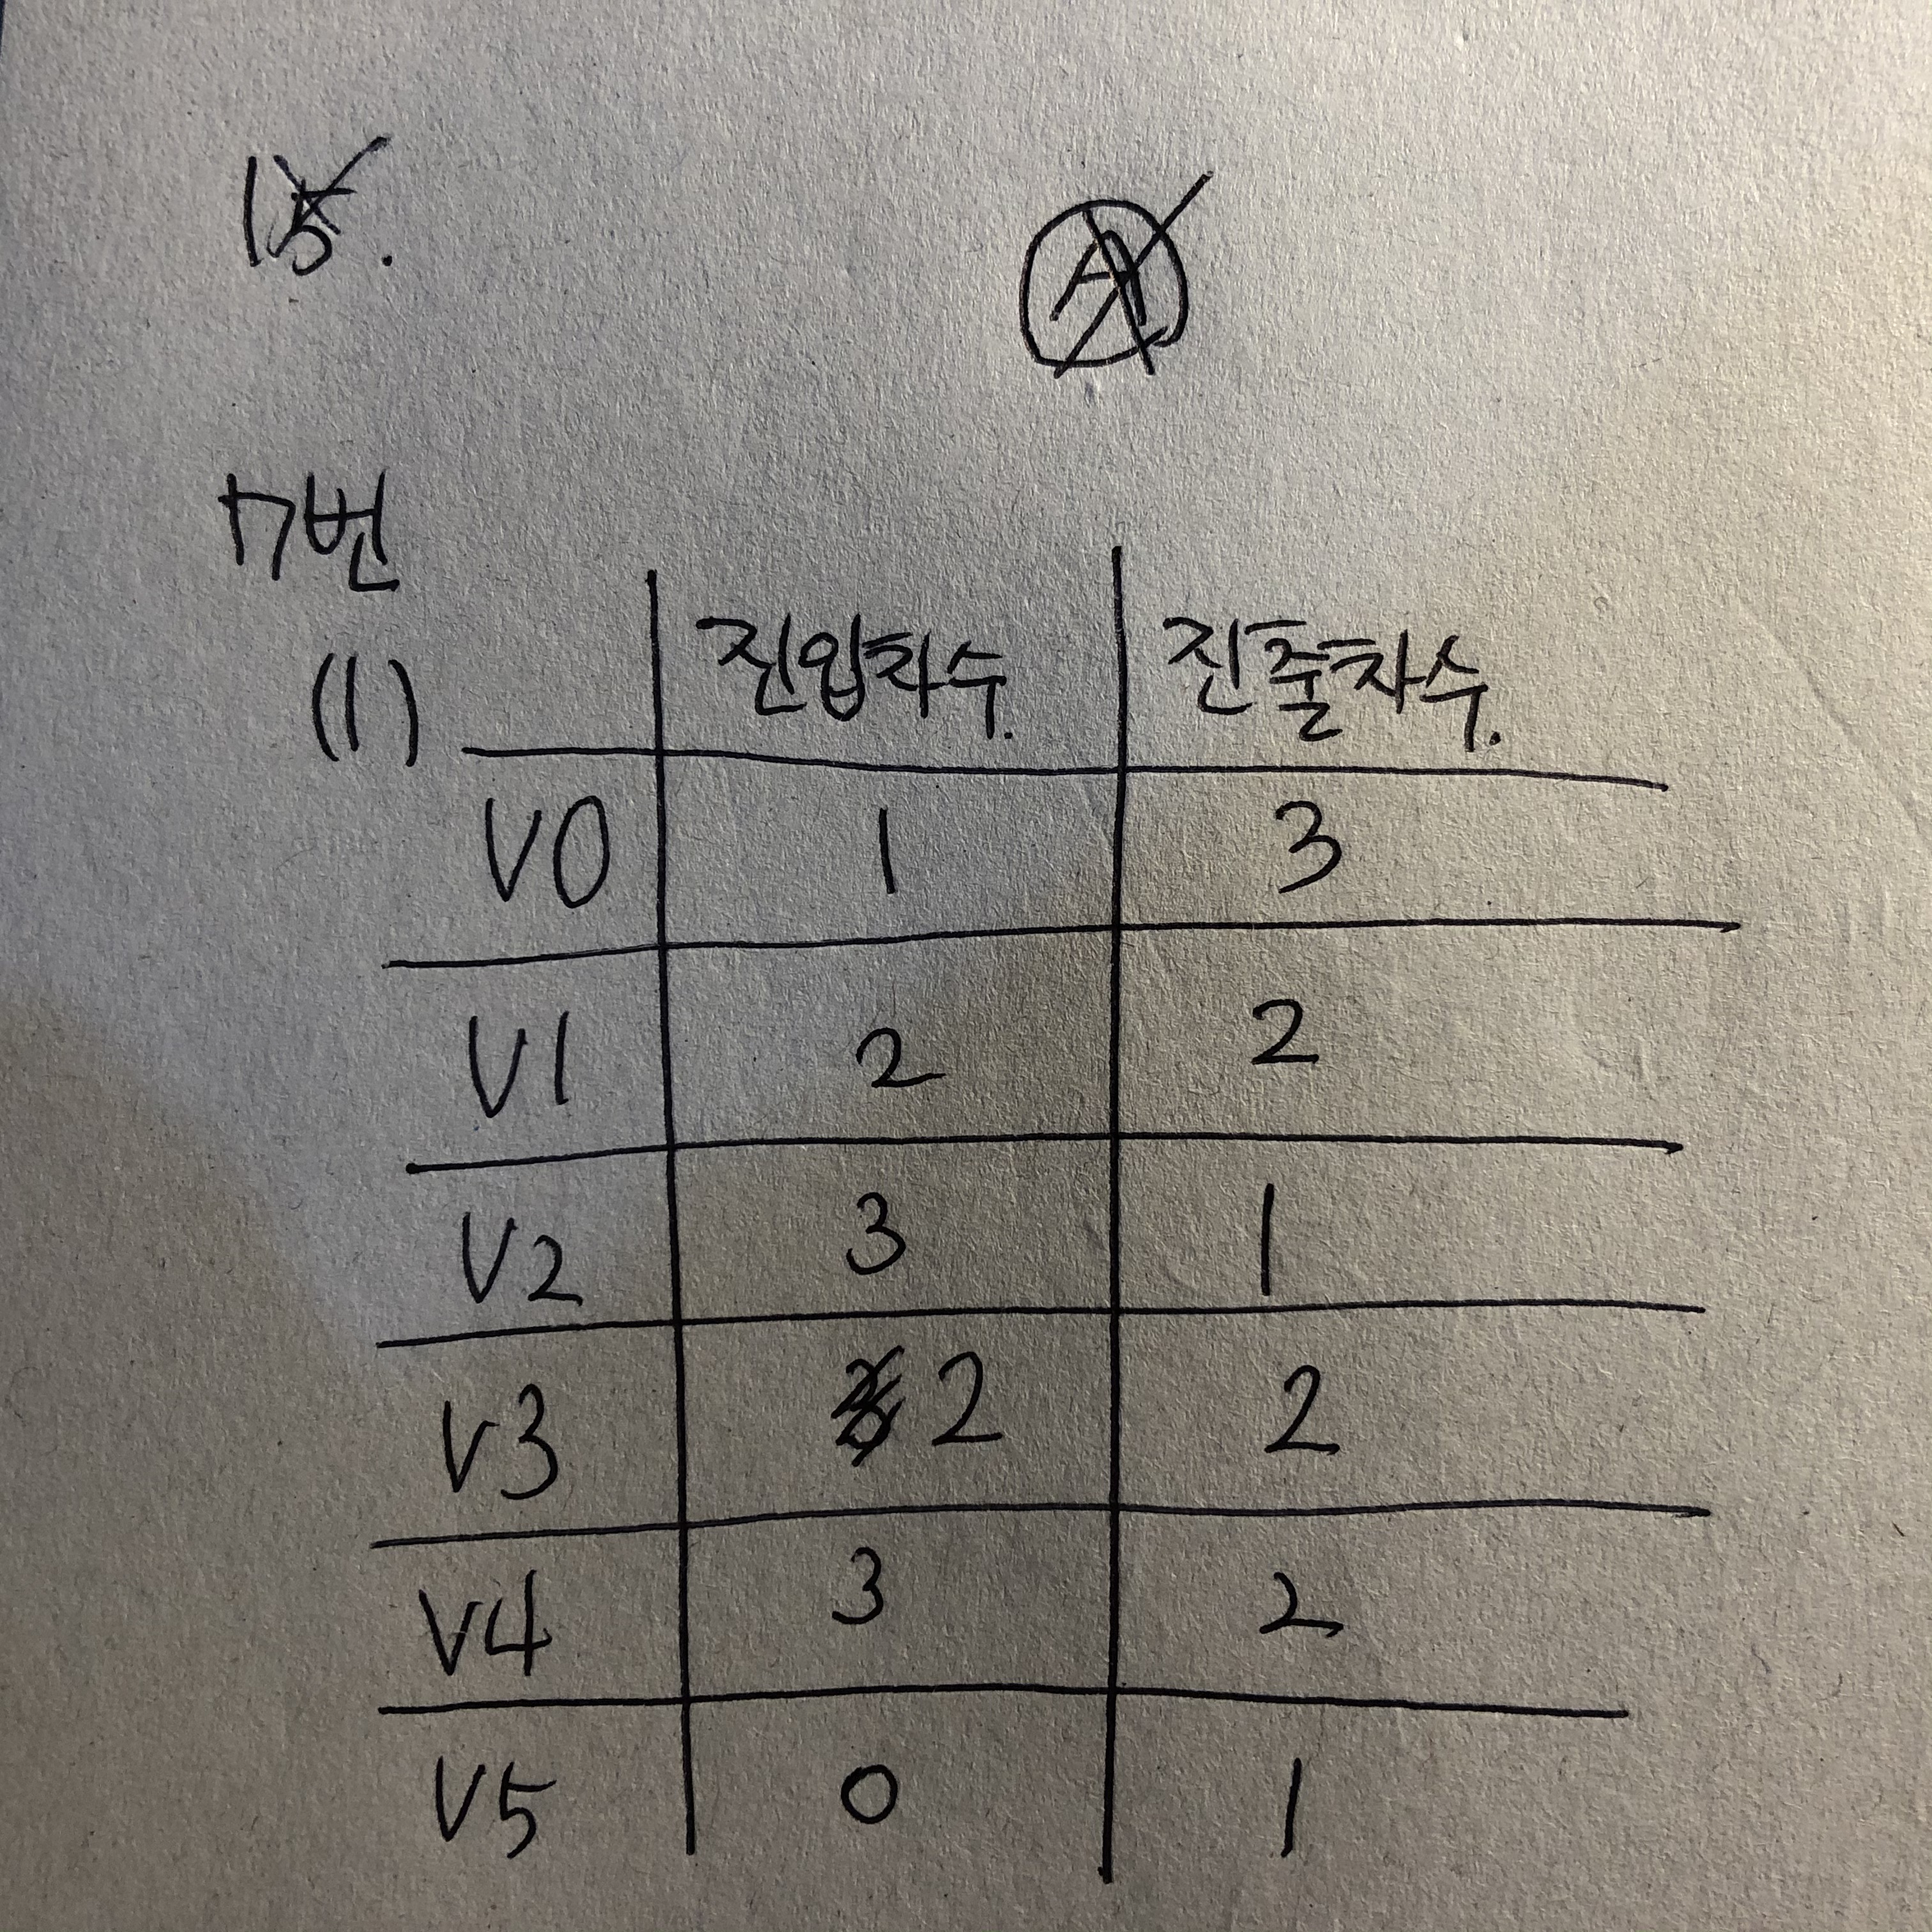 15.
A
17번
(1) 진입차수. 진출차수.
V0 1 3
V1 2 2
V2 3 1
V3 2 2
V4 3 2
V5 0 1